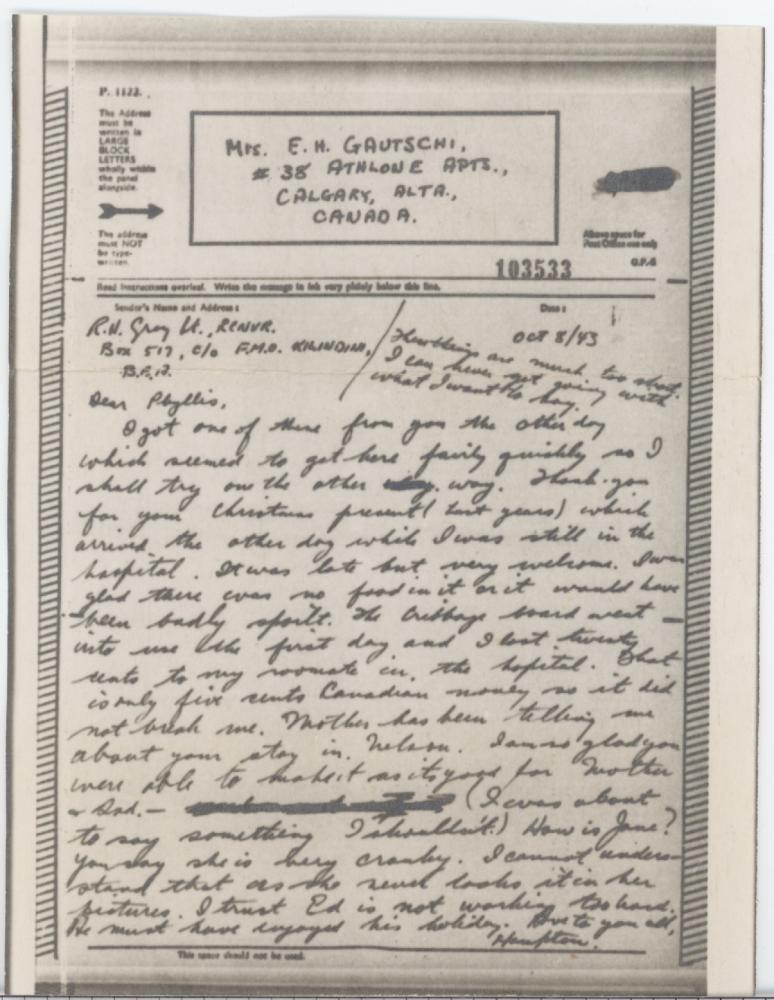 P. 1122.
The Address
must be
written in
LARGE
BLOCK
LETTERS
wholly within
the panel
alongside.
The address
must NOT
be type-
written.
Mrs. E. H. GAUTSCHI,
# 38 ATHLONE APTS.,
CALGARY, ALTA.,
CANADA.
Above space for
Post Office use only
G.P.S
103533
Read Instructions overleaf. Write the message in ink very plainly below this line.
Sender's Name and Address:
Date:
R.H. Gray Lt., RCNVR.
Box 517, c/o F.M.O. KILINDINI,
Oct 8/43
These things are much too short.
I can never get going with
what I want to say.
Dear Phyllis,
I got one of these from you the other day
which seemed to get here fairly quickly so I
shall try one the other way. Thank-you
for your Christmas present (last years) which
arrived the other day while I was still in the
hospital. It was late but very welcome. I was
glad there was no food in it or it would have
been badly spoilt. The Cribbage board went
into use the first day and I lost twenty
cents to my roomate in the hopital. That
is only five cents Canadian money so it did
not break me. Mother has been telling me
about your stay in Nelson. I am so glad you
were able to make it as its good for Mother
+ Dad. — (I was about
to say something I shouldn't.) How is Jane?
You say she is very cranky. I cannot unders-
stand that as she never looks it in her
pictures. I trust Ed is not working too hard.
He must have enjoyed his holiday. Love to you all,
Hampton.
This space should not be used.